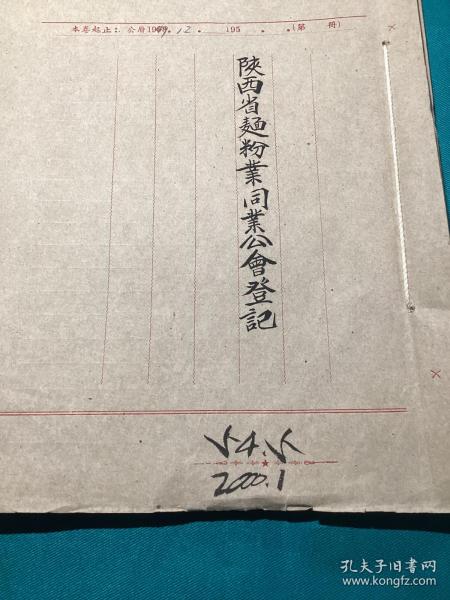 本卷起止：公曆1949.12. 195 . .(第 冊)
陝西省麵粉業同業公會登記
54.5
2000.1
孔夫子旧书网
www.kongfz.com